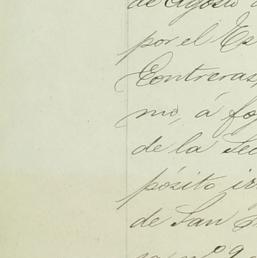 de Agosto
por el Es
Contreras,
mo, á fo
de la Sec
pósito
de San